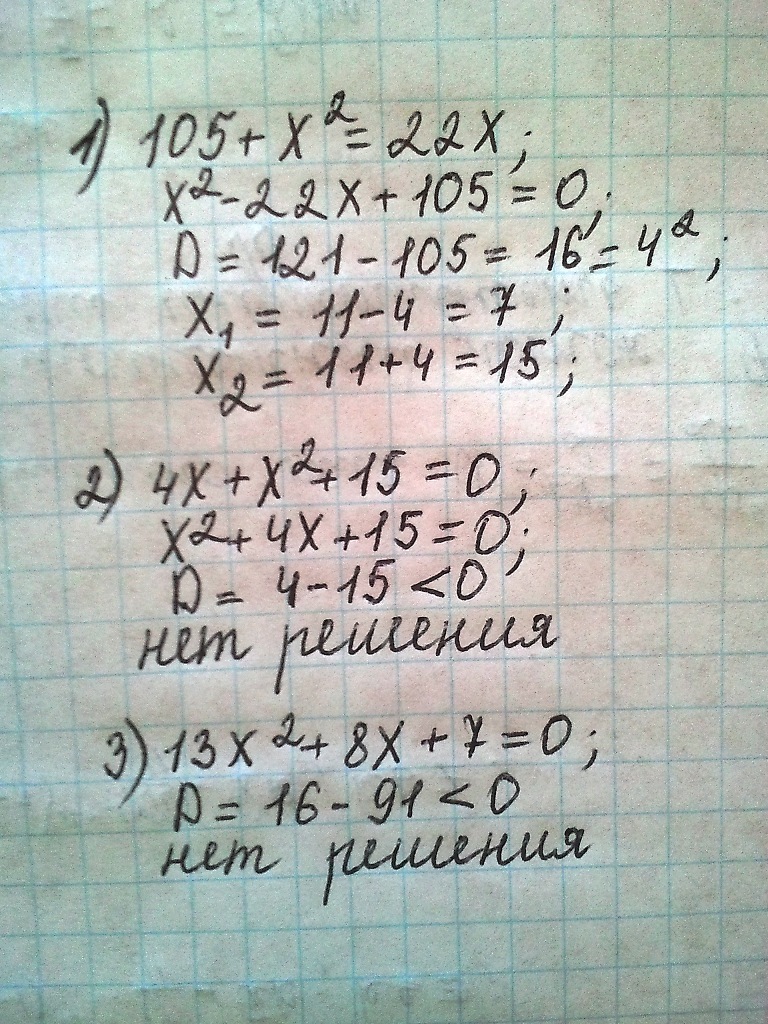 1) 105 + x² = 22x;
x² - 22x + 105 = 0;
D = 121 - 105 = 16 = 4²;
x₁ = 11 - 4 = 7;
x₂ = 11 + 4 = 15;
2) 4x + x² + 15 = 0;
x² + 4x + 15 = 0;
D = 4 - 15 < 0
нет решения
3) 13x² + 8x + 7 = 0;
D = 16 - 91 < 0
нет решения